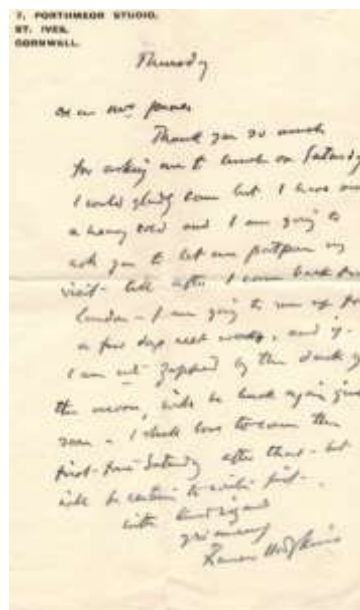 7, PORTHMEOR STUDIO,
ST. IVES,
CORNWALL.
Thursday
Thank you so much
for asking me to lunch on Saturday
I would gladly come but I have
a heavy cold and I am going to
ask you to let me postpone my
visit till after I come back from
London - I am going to run up for
a few days next week, and if
I am not by the dark of
the moon, will be back again
soon - I should love to come the
first free Saturday after that - but
will be certain to write first -
with kind regards
yrs sincerely
Frances Hodgkins